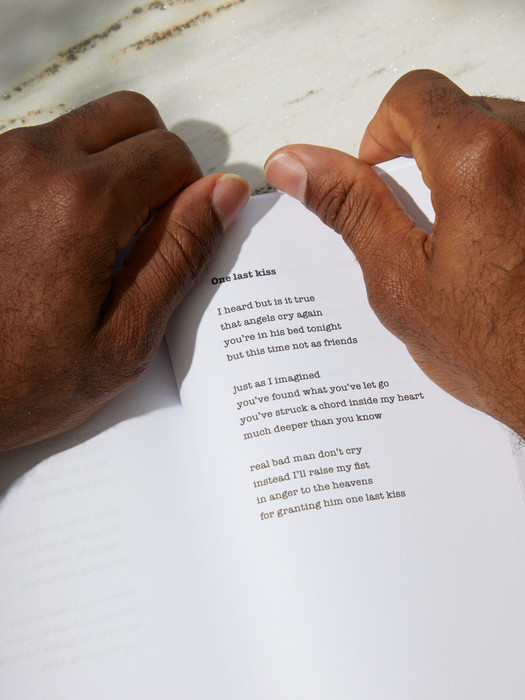 One last kiss
I heard but is it true
that angels cry again
you're in his bed tonight
but this time not as friends
just as I imagined
you've found what you've let go
you've struck a chord inside my heart
much deeper than you know
real bad man don't cry
instead I'll raise my fist
in anger to the heavens
for granting him one last kiss